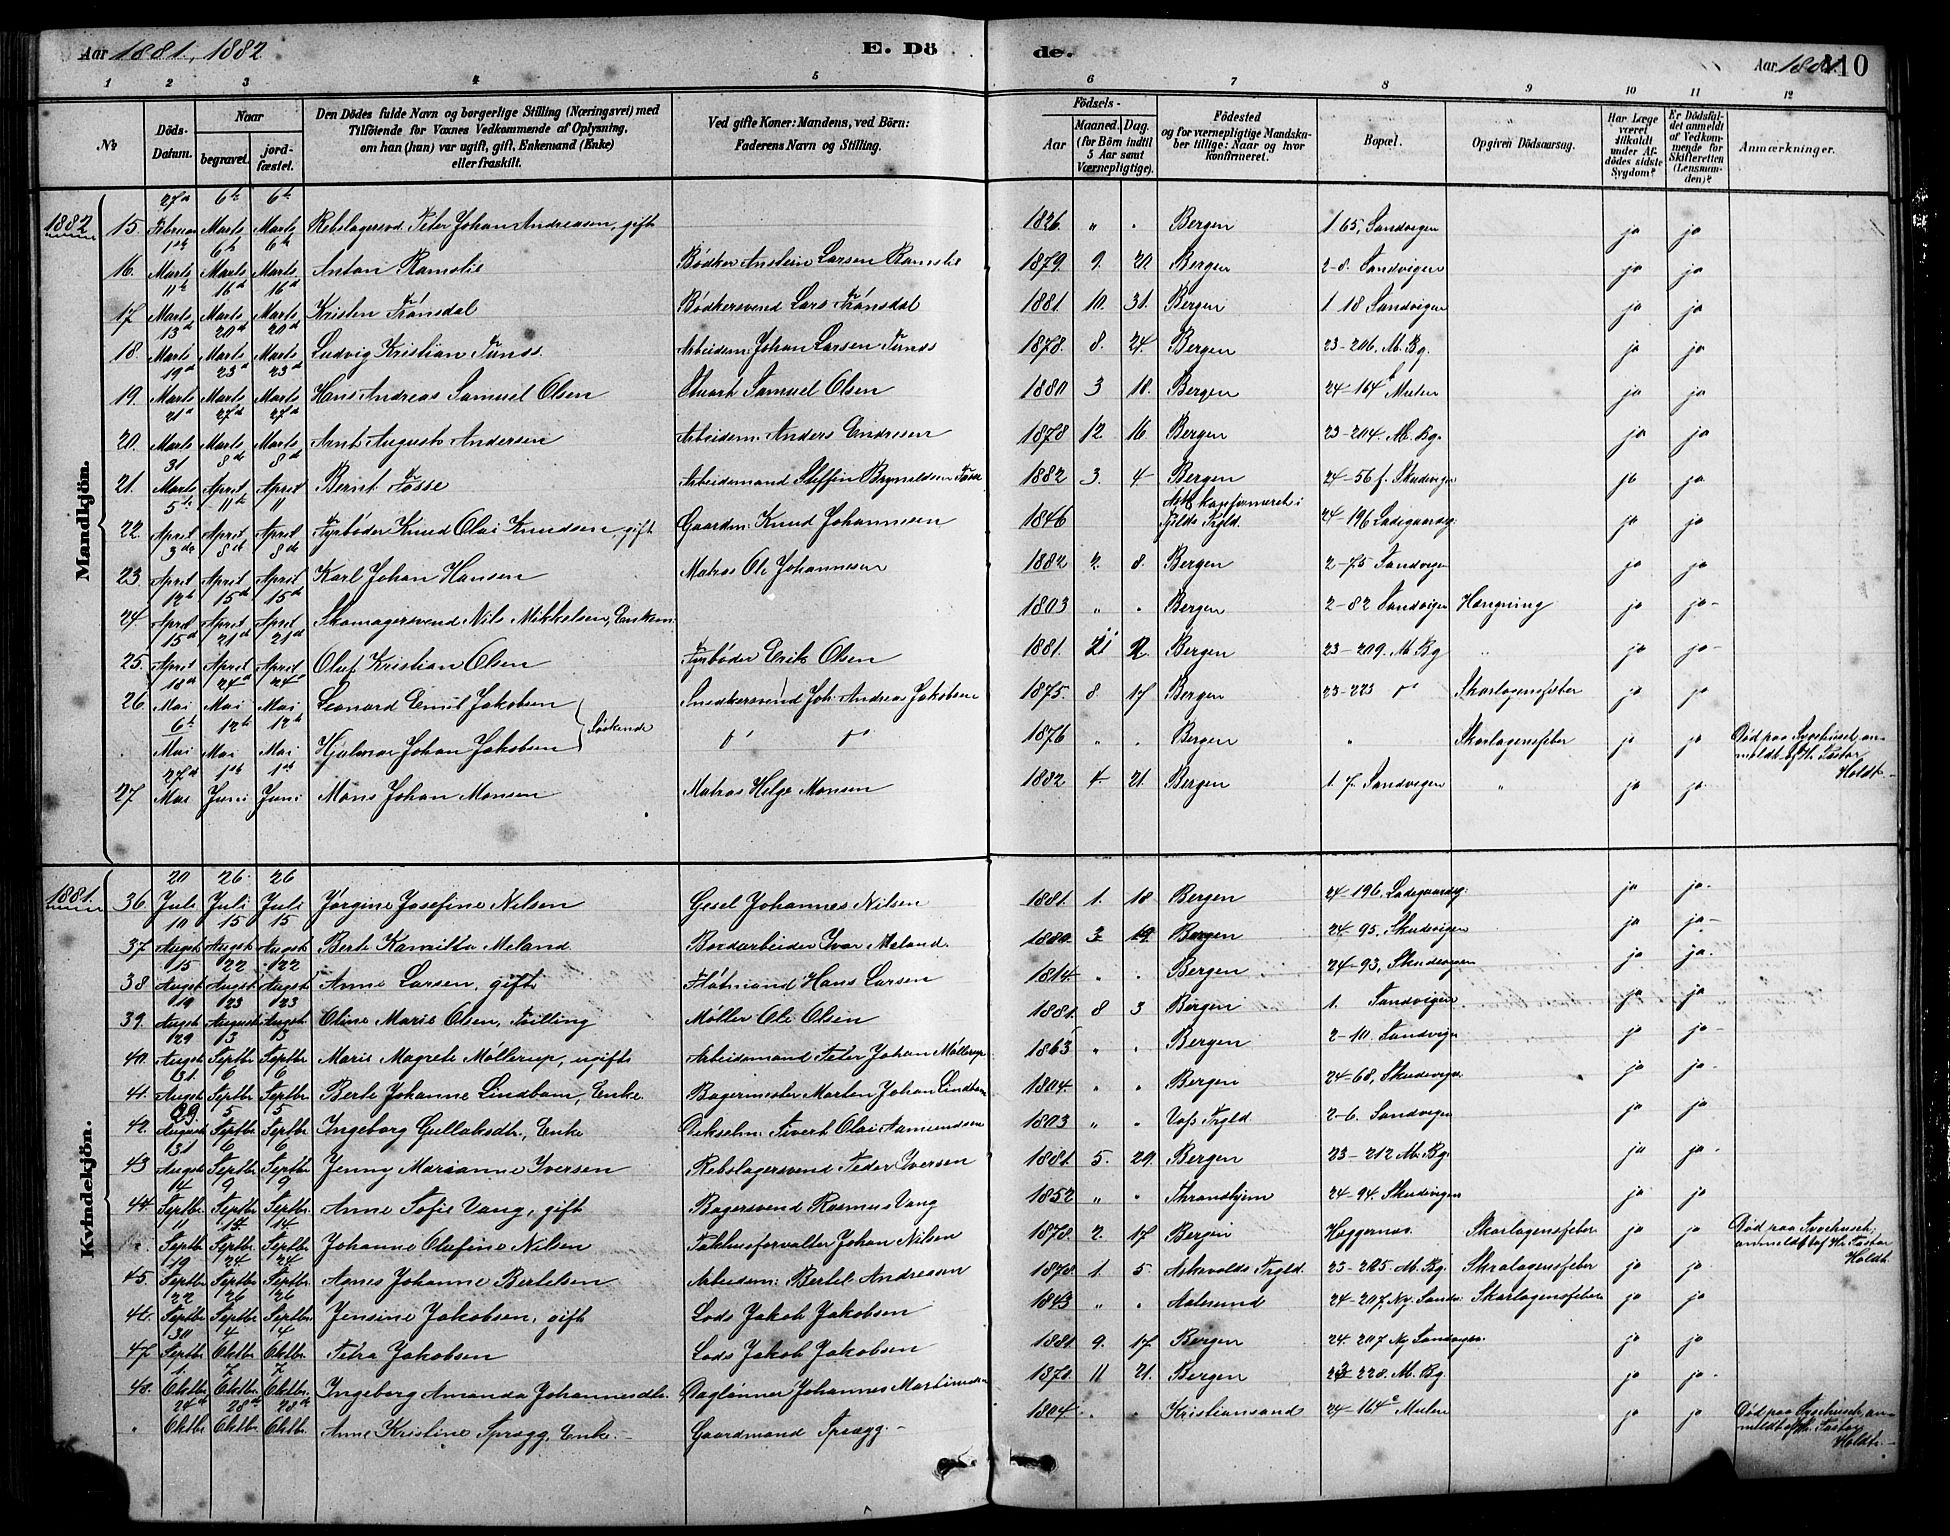 Aar 1881, 1882 E. Dö de. Aar 1881. 110
1 2 3 4 5 6 7 8 9 10 11 12
No Döds-Datum. Naar begravet. jordfæstet. Den Dödes fulde Navn og borgerlige Stilling (Næringsvei) med Tilföiende for Voxnes Vedkommende af Oplysning, om han (hun) var ugift, gift, Enkemand (Enke) eller fraskilt. Ved gifte Koner: Mandens, ved Börn: Faderens Navn og Stilling. Födsels- Aar Maaned. Dag. (for Börn indtil 5 Aar samt Værnepligtige). Födested og for værnepligtige Mandskaber tillige: Naar og hvor konfirmeret. Bopæl. Opgiven Dödsaarsag. Har Læge været tilkaldt under Afdödes sidste Sygdom? Er Dödsfaldet anmeldt af Vedkommende for Skifteretten (Lensmanden)? Anmærkninger.
Mandkjön.
1882 15. 27de Februar 6te Marts 6te Marts Rebslagersvd. Peter Johan Andreasen, gift 1826 " " Bergen 1 65, Sandvigen ja ja
16. 1ste Marts 6te Marts 6te Marts Anton Ramslie Bödker Anstein Larsen Ramslie 1879. 9. 20. Bergen 2-8. Sandvigen ja ja
17 11te Marts 16de Marts 16de Marts Kristen Fónsdal Bödkersvend Lars Fónsdal 1881. 10. 31. Bergen 1 18 Sandvigen ja ja
18. 13de Marts 20de Marts 20de Marts Ludvig Kristian Tunss. Arbeidsm: Johan Larsen Tunss 1878. 8. 24. Bergen 23-206. M. Bg. ja ja
19. 19de Marts 23de Marts 23de Marts Hans Andreas Samuel Olsen Stuart Samuel Olsen 1880 3 18. Bergen 24-164 e Mulen ja ja
20. 21de Marts 27de Marts 27de Marts Arnt August Andersen Arbeidsm: Anders Endresen 1878 12. 16 Bergen 23-204. M. Bg. ja ja
21. 31 Marts 8de April 8de April Bernt Fosse Arbeidsmand Steffen Brynildsen Fosse 1882 3. 4. Bergen 24-56 f. Skudvigen ja ja
22. 5te April 11te April 11 April Fyrböder Knud Olai Knudsen, gift Gaardm: Knud Johannesen 1846 Prgld. 24-196 Ladegaardsg: ja ja
23. 3de April 8de April 8de April Karl Johan Hansen Matros Ole Johannesen 1882 2. 8. Bergen 2-75 Sandvigen ja ja
24. 12te April 15de April 15de April Skomagersvend Nils Mikkelsen, Enkem: 1803 " " Bergen 2-82 Sandvigen Hængning ja ja-
25. 15de April 21de April 21de April Oluf Kristian Olsen Fyrböder Erik Olsen 1881. 11 2. Bergen 23-209. M Bg " ja ja-
26. 18de Mai 24de Mai 24de Mai Leonard Emil Jakobsen Snedkersvend Joh. Andreas Jakobsen 1875. 8 17 Bergen 23-223 do Skarlagensfeber ja ja
. 6te Mai 12te Mai 12te Mai Hjalmar Johan Jakobsen Söskende do do 1876 " " Bergen " Skarlagensfeber ja ja Död paa Sygehuset, anmeldt af Hr. Pastor Holdt.
27 27de Mai 1ste Juni 1ste Juni Mons Johan Monsen Matros Helge Monsen 1882 4. 21. Bergen 1. 7. Sandvigen " ja ja
Kvindekjön.
1881. 36. 20 Juli 26 Juli 26 Juli Jörgine Josefine Nilsen Gesel Johannes Nilsen 1881. 1. 18 Bergen 24-196. Ladegaardsg: ja ja-
37 10 August 15 August 15 August Berte Kamilla Meland Bordarbeider Ivar Meland. 1880. 3 19. Bergen 24-95. Skudvigen ja ja-
38 15 August 22 August 22 August Anne Larsen, gift Flötmand Hans Larsen 1814. " " Bergen 24-93, Skudvigen ja ja.
39. 19 August 23 August 23 August Oline Marie Olsen, Tvilling Möller Ole Olsen 1881. 8 3 Bergen 1. Sandvigen ja ja
40. 29 August 3 Septbr 3 Septbr Marie Magrete Möllerup, ugift Arbeidsmand Peter Johan Möllerup 1863 " " Bergen 2-10. Sandvigen ja ja-
41. 31. August 6 Septbr 6 Septbr Berte Johanne Lindbom, Enke Bagermester Morten Johan Lindbom 1804. " " Bergen 24-68, Skudvigen ja ja-
42. 29 August 5 Septbr 5 Septbr Ingeborg Gullaksdtr, Enke Sivert Olai Aamundsen 1803 " " Voss Prgld. 2-6. Sandvigen ja ja
43 31 August 6 Septbr 6 Septbr Jenny Marianne Iversen Rebslagersvend Peder Iversen 1881. 5. 29. Bergen 23-212 M. Bg. ja ja-
44. 4 Septbr 9 Septbr 9 Septbr Anne Sofie Vang, gift Bagersvend Rasmus Vang 1852 " " Throndhjem 24-94. Skudvigen ja ja
". 11 Septbr 14 Septbr 14 Septbr Johanne Olufine Nilsen Pakhusforvalter Johan Nilsen 1878. 2. 17 Bergen Heggernæs. Skarlagensfeber ja ja Död paa Sygehuset, anmeldt af Hr. Pastor Holdt.
45. 19 Septbr 24 Septbr 24 Septbr Agnes Johanne Bertelsen Arbeidsm: Bertel Andresen 1878. 1. 5. Askvolds Prgld. 23-205 M. Bg. Skralagensfeber ja ja
46. 22 Septbr 26 Septbr 26 Septbr Jensine Jakobsen, gift Lods Jakob Jakobsen 1843 " " Aalesund 24-207, Ny. Sandv: Skarlagensfeber ja ja
47 30 Septbr 4 Oktbr. 4 Oktbr. Petra Jakobsen Lods Jakob Jakobsen 1881. 9. 17 Bergen 24-207 Ny Sandvigen. ja ja
48. 1 Oktbr 7 Oktbr. 7 Oktbr. Ingeborg Amanda Johannesdtr. Daglönner Johannes Martinusen 1878. 11 21. Bergen 23-228. M. Bg. ja ja-
" 24de Oktbr 28de Oktbr. 28de Oktbr. Anne Kristine Sprægg, Enke- Gaardmand Sprægg- 1804 " " Kristiansand 24-164 e Mulen ja ja Död paa Sygehuset, anmeldt af Hr. Pastor Holdt.-